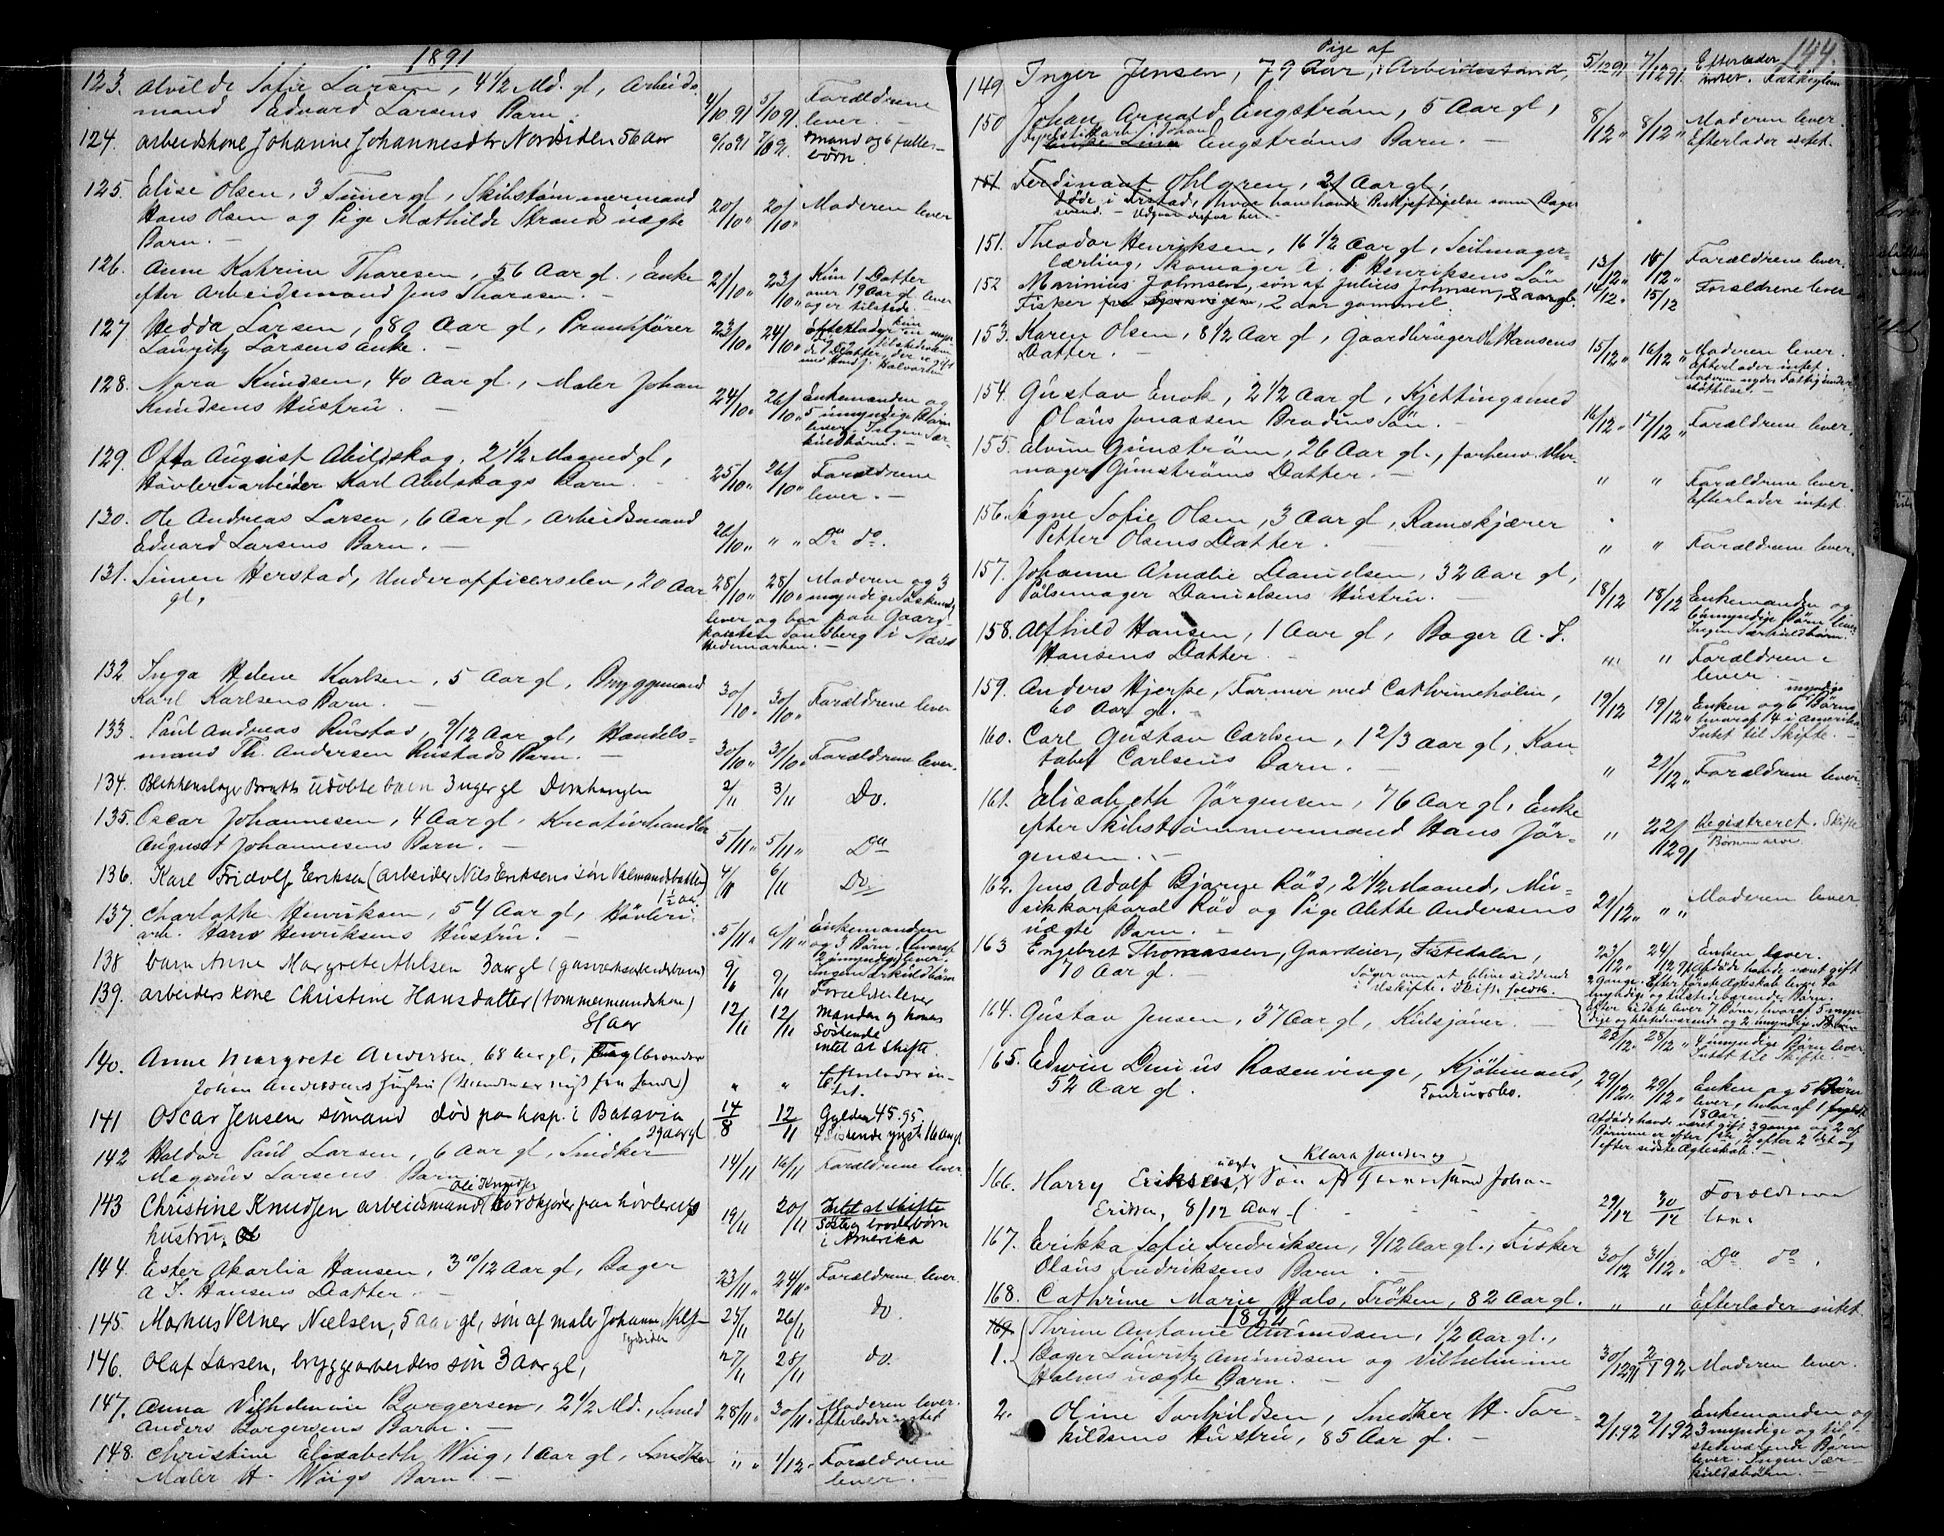 1891
123. Alvilde Sofie Larsen, 4 1/2 Md. gl, Arbeids- 4/10 91 5/10 91. Forældrene
mand Edvard Larsens Barn. lever. —
124. Arbeidskone Johanne Johannesdtr Nordsiden 56 Aar 6/10 91 7/10 91. mand og 6
børn.
125. Elise Olsen, 3 Timer gl, Skibstømmermand 20/10 " 20/10 " Moderen lever
Hans Olsen og Pige Mathilde Strands uægte
Barn. —
126. Anne Katrine Thoresen, 56 Aar gl., Enke 21/10 " 23/10 " Kun 1 Datter
efter Arbeidsmand Jens Thoresen. — over 19 Aar gl. lever
og er tilstede. —
127. Hedda Larsen, 80 Aar gl, Brandfører 23/10 " 24/10 " Efterlader kun
Lauritz Larsens Enke. —
128. Nora Knudsen, 40 Aar gl, Maler Johan 24/10 " 26/10 " Enkemanden og
Knudsens Hustru. — 5 umyndige Børn
lever. Ingen sær-
kuldbørn. —
129. Otto August Abildskog, 2 1/2 Maaned gl, 25/10 " 26/10 " Forældrene
Høvleriarbeider Karl Abilskogs Barn. lever. —
130. Ole Andreas Larsen, 6 Aar gl, Arbeidsmand 26/10 " " " Do do.
Edvard Larsens Barn. —
131. Simen Herstad, Underofficerselev, 20 Aar 28/10 " 28/10 " Moderen og 3
gl, myndige Søskende
lever og bor paa Gaard-
Sandberg i
Hedemarken. —
132 Inga Helene Karlsen, 5 Aar gl, Bryggemand 30/10 " 30/10 " Forældrene lever
Karl Karlsens Barn. —
133. Paul Andreas Rustad, 9/12 Aar gl, Handels- 30/10 " 31/10 " Forældrene lever.
mand Th. Andersen Rustads Barn. —
134. Blikkenslager udøbte barn 3 uger gl 2/11 3/11 Do.
135. Oscar Johannesen, 4 Aar gl. Kreaturhandler 5/11 " 5/11 " Do
August Johannesens Barn. —
136. Karl Fridolf Eriksen (arbeider Nils Eriksens søn) 4/11 6/11 Do
1 1/2 aar
137. Charlotte Henriksen, 54 Aar gl, Høvleri- 5/11 " 6/11 " Enkemanden
arb. Hans Henriksens Hustru. — og 3 Børn, hvoraf
2 umyndige lever.
Ingen særkuldbørn
138 barn Anne Margrete Ahlsen 3 aar gl 9/11 Forældre lever
139. arbeiders kone Christine Hansdatter 12/11 12/11 Manden og
Søskende
51 Aar intet at skifte.
140. Anne Margrete Andersen, 68 Aar gl, " " Efterlader in-
Johan Andersens tet.
141 Oscar Jensen sømand død på hosp. i Batavia 14/8 12/11 Gylden 45.95
29 aar gl 4 søstende yngst 16 aar gl
142 Haldor Paul Larsen, 6 Aar gl, Snedker 14/11 16/11 Forældrene lever
Magnus Larsens Barn
143 Christine Knudsen arbeidsmand Ole Knudsen 19/11 20/11 Intet at skifte
hustru. brodebørn
i Amerika
144. Ester Akarlia Hansen, 3 10/12 Aar gl, Bager 23/11 24/11 " Forældrene lever.
A. J. Hansens Datter. —
145. Markus Verner Nielsen, 5 aar gl, søn af maler Johann 25/11 26/11 do
146. Olaf Larsen, bryggearbeiders søn 3 Aar gl, 27/11 28/11 do.
147. Anna Vilhelmine Borgersen, 2 1/2 Md., Smed 28/11 " 30/11 " Moderen lever.
Anders Borgersens Barn. — Efterlader intet
148. Christine Elisabeth Wiig, 1 Aar gl, Snedker " " 1/12 " Forældrene
Maler H. Wiigs Barn. — lever.
144.
Pige af
149 Inger Jensen, 79 Aar, Arbeidsstand, 5/12 91 7/12 91. Efterlader
intet.
150 Johan Arnold Engstrøm, 5 Aar gl, 8/12 " 8/12 " Moderen lever.
Johan Engstrøms Barn. — Efterlader intet.
151 Ferdinant Ohlgren, 21 Aar gl,
døde i Ørstad, hvor han havde Beskjæftigelse som Bager
svend. — Udgaar derfor her. —
151. Theodor Henriksen, 16 1/2 Aar gl, Seilmager- 13/12 " 15/12 " Forældrene lever.
lærling, Skomager A. P. Henriksens Søn
152 Marinius Johnsen, søn af Julius Johnsen, 14/12 " 15/12 Forældrene lever
Fisker 2 aar gammel.
153. Karen Olsen, 8 1/2 Aar gl, Gaardbruger Ol. Hansens 15/12 " 16/12 " Moderen lever.
Datter. — Efterlader intet.
Moderen nyder Fattigunder-
støttelse. —
154. Gustav Enok, 2 1/2 Aar gl, Kjettingsmed 16/12 " 17/12 " Forældrene lever.
Olaus Jonassen Brodins Søn. —
155. Alvine Gunstrøm, 26 Aar gl., forhenv. Uhr- " " Forældrene lever.
mager Gunstrøms Datter. — Efterlader intet
156. Signe Sofie Olsen, 3 Aar gl, Remskjærer " " Forældrene lever.
Petter Olsens Datter. —
157. Johanne Amalie Danielsen, 32 Aar gl, 18/12 18/12 Enkemanden og
Pølsemager Danielsens Hustru. — umyndige Børn lever
Ingen særkuldbørn.
158. Alfhild Hansen, 1 Aar gl, Bager A. J. " " Forældrene
Hansens Datter. — lever
159. Anders Hjerpe, Former ved Cathrineholm, 19/12 19/12 " Enken og 6 myndige Børn
60 Aar gl. — hvoraf 4 i Amerika
Intet til Skifte. —
160. Carl Gustav Carlsen, 1 2/3 Aar gl, Kon- " 21/12 " Forældrene lever
tobet Carlsens Barn. —
161. Elisabeth Jørgensen, 76 Aar gl, Enke " 22/12 91 Registreret. Skifte
efter Skibstømmermand Hans Jør-
gensen. —
162. Jens Adolf Bjarne Rød, 2 1/2 Maaned, Mu- 21/12 " " " Moderen lever
sikkorporal Rød og Pige Alette Andersens
uægte Barn. —
163 Engebret Thomassen, Gaardeier, Tistedalen, 23/12 " 24/12 91 Enken lever.
70 Aar gl. — Afdøde havde været gift
Søger om at blive siddende 2 Gange. Efter første Ægteskab lever to
i uskifte. myndige og tilstedeværende Børn.
Efter sidste lever 7 Børn, hvoraf 5 myn-
dige og tilstedeværende og 2 umyndige Børn
164. Gustav Jensen, 37 Aar gl, Kulsjouer 22/12 " 28/12 " 4 umyndige Børn lever.
Intet til Skifte. —
165. Edwin Dinius Rosenvinge, Kjøbmand, 29/12 " 29/12 " Enken og 5 Børn
52 Aar gl. lever, hvoraf 1
18 Aar. —
Afdøde havde været gift 3 gange og 2 af
Børnene er efter 1ste, 2 efter 2det og
1 efter sidste Ægteskab. —
166. Harry Eriksen, uægte Søn af Klara Jansen og Johan 29/12 30/12 Forældrene
Eriksen, 8/12 Aar
167. Erikka Sofie Fredriksen, 9/12 Aar gl., Fisker 30/12 31/12 " Do do.
Olaus Fredriksens Barn. —
168. Cathrine Marie Hals, Frøken, 82 Aar gl. " " Efterlader intet
1892
169 Thrine Antonie Amundsen, 1/2 Aar gl.,
1. Bager Lauritz Amundsen og Vilhelmine 30/12 91 2/1 92 Moderen lever.
Holms uægte Barn. —
2. Oline Torkildsen, Snedker H. Tor- 2/1 92 2/1 92 Enkemanden og
kildsens Hustru, 85 Aar gl. — 3 myndige og til-
stedeværende Børn
lever. Ingen Sær-
kuldsbørn. —